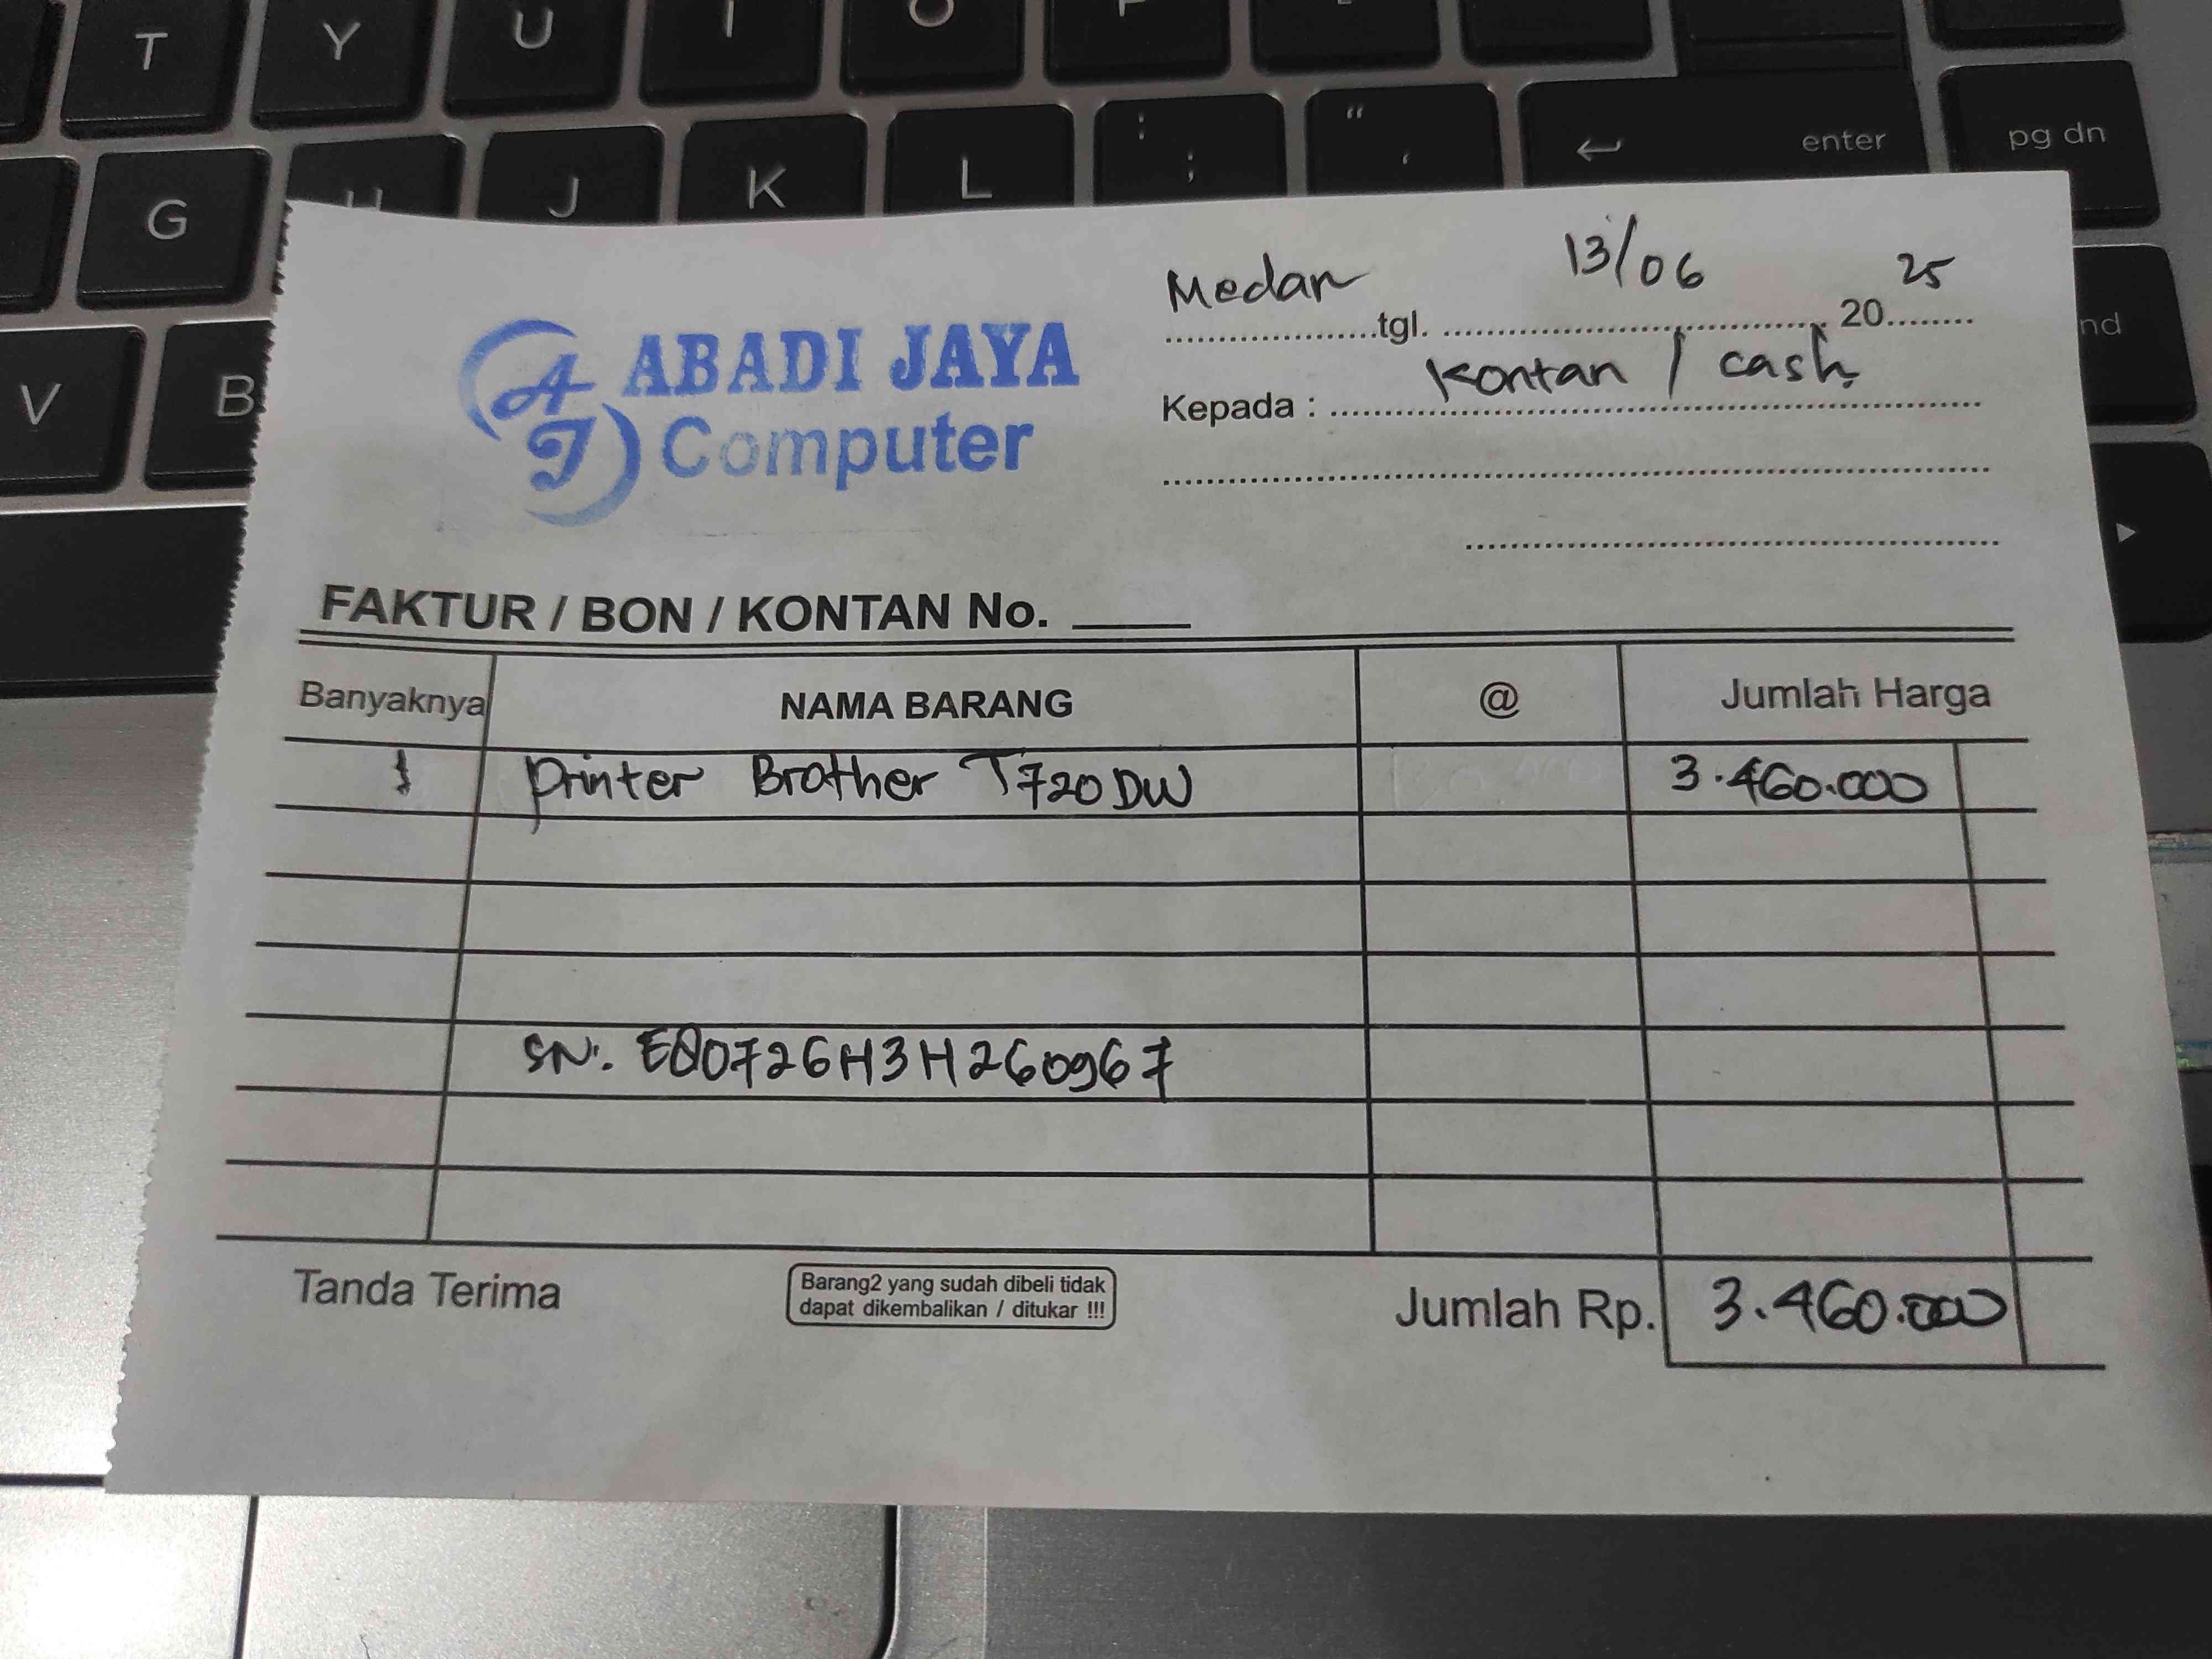 T Y U I O P
G H J K L : ; " ' enter pg dn
V B nd
Medan tgl. 13/06 2025
Kepada : Kontan / cash
AJ ABADI JAYA
Computer
FAKTUR / BON / KONTAN No.
Banyaknya NAMA BARANG @ Jumlah Harga
1 Printer Brother T720DW 3.460.000
SN. E80726H3H260967
Tanda Terima
Barang2 yang sudah dibeli tidak
dapat dikembalikan / ditukar !!!
Jumlah Rp. 3.460.000